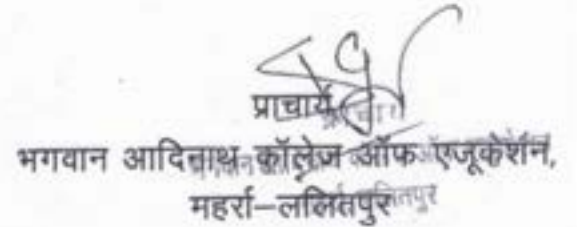 प्राचार्य
भगवान आदिनाथ कॉलेज ऑफ एजूकेशन,
महर्रा–ललितपुर